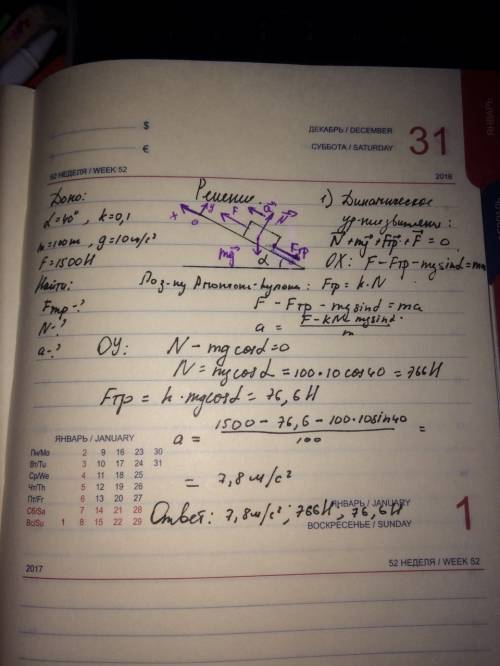 $
€
52 НЕДЕЛЯ / WEEK 52
ДЕКАБРЬ / DECEMBER
СУББОТА / SATURDAY
31
2016
ЯНВАРЬ
Дано:
α=40°, k=0,1
m=100m, g=10м/с²
F=1500Н
Найти:
Fтр-?
N-?
a-?
Решение.
x 0 y F a N Fтр mg α
1) Динамическое
ур-ние движения:
N+mg+Fтр+F=0
OX: F-Fтр-mgsinα=ma
По з-ну Амонтона-Кулона: Fтр = k·N
F - Fтр - mgsinα = ma
a = F-kN-mgsinα / m
OY: N-mgcosα=0
N=mgcosα=100·10cos40=766Н
Fтр = k·mgcosα=76,6Н
a = 1500-76,6-100·10sin40 / 100 =
= 7,8м/с²
Ответ: 7,8м/с²; 766Н; 76,6Н
ЯНВАРЬ / JANUARY
Пн/Mo 2 9 16 23 30
Вт/Tu 3 10 17 24 31
Ср/We 4 11 18 25
Чт/Th 5 12 19 26
Пт/Fr 6 13 20 27
Сб/Sa 7 14 21 28
Вс/Su 1 8 15 22 29
ЯНВАРЬ / JANUARY
ВОСКРЕСЕНЬЕ / SUNDAY
1
2017
52 НЕДЕЛЯ / WEEK 52